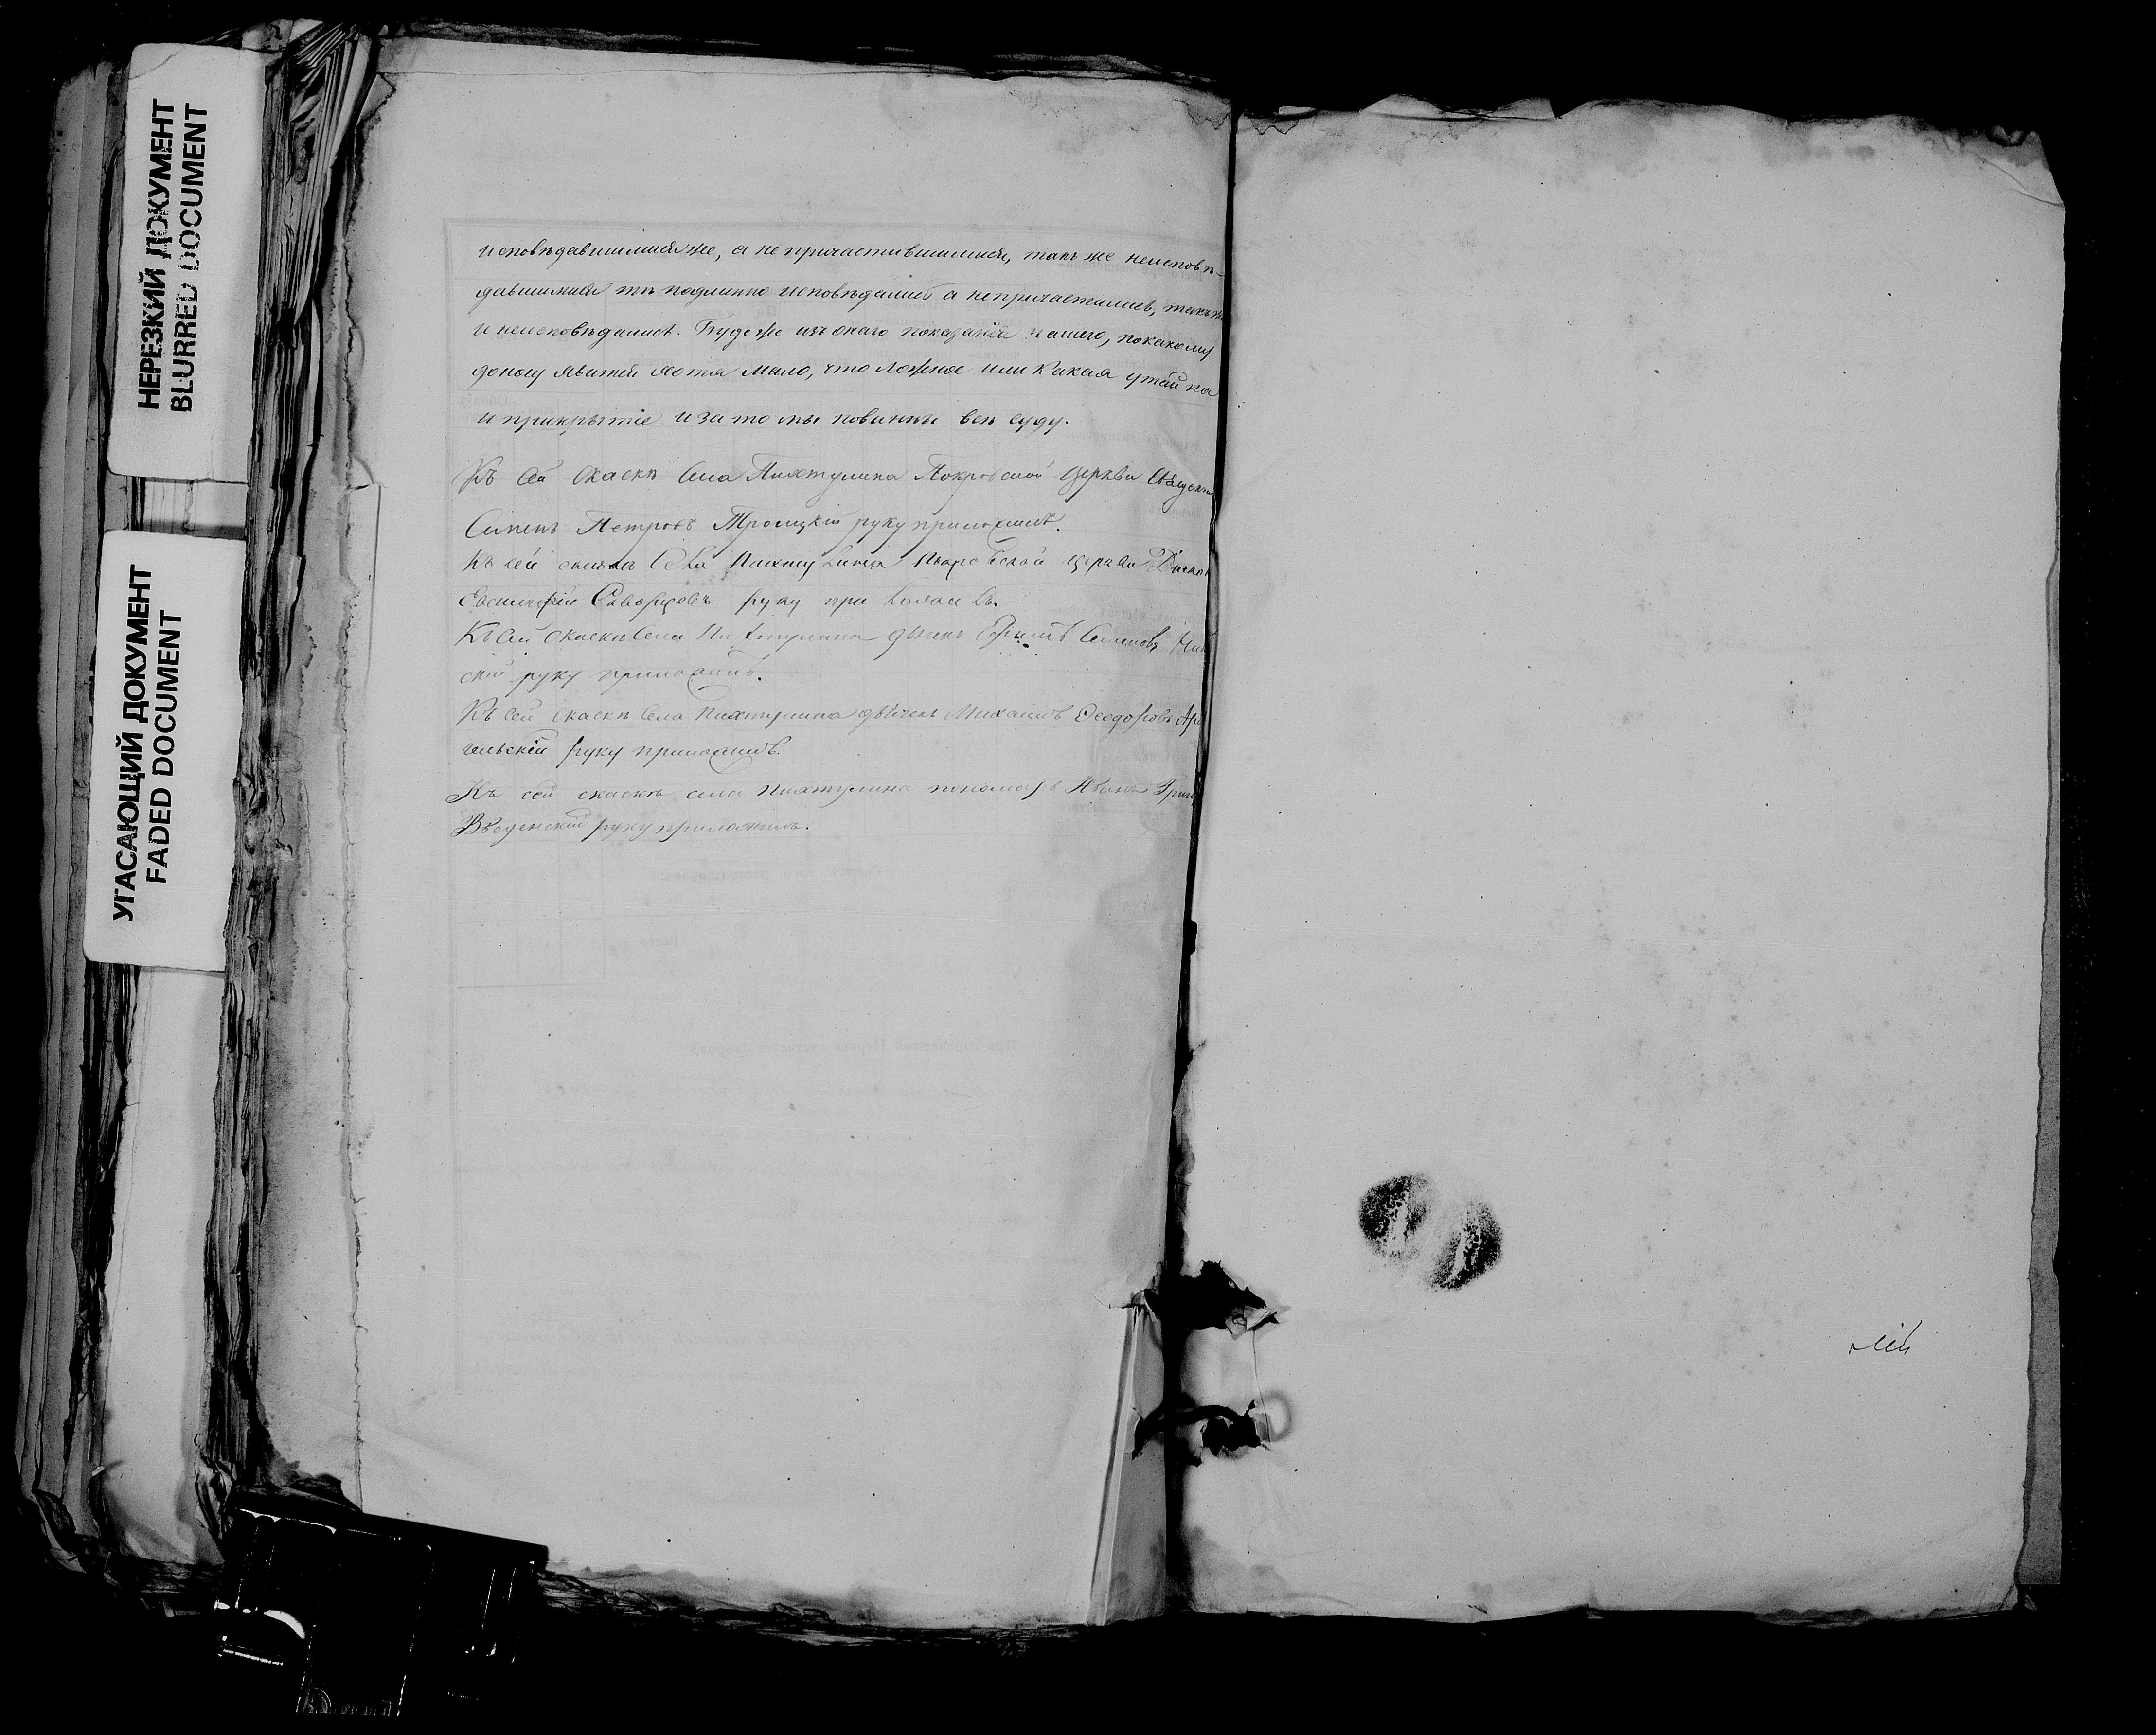 НЕРЕЗКИЙ ДОКУМЕНТ
BLURRED DOCUMENT
УГАСАЮЩИЙ ДОКУМЕНТ
FADED DOCUMENT
исповѣдавшимися же, а не причастившимися, такъ же неисповѣ-
давшимися тѣ подлинно исповѣдались а непричастились, также
и неисповѣдались. Буде же изъ онаго показанія нашего, покакому
доносу явится хотя мало, что ложное или какая утайка
и прикрытіе и за то мы повинны всѣ суду.
Къ сей скаскѣ села Пихтулина Покровской церкви Священ
Симеонъ Петровъ Троицкій руку приложилъ.
Къ сей скаскѣ Села Пихтулина Покровской церкви Діакон
Скворцовъ руку приложилъ.
Къ сей скаскѣ Села Пихтулина дьячекъ Ефимъ Семеновъ
скій руку приложилъ.
Къ сей скаскѣ Села Пихтулина дьячекъ Михаилъ Ѳеодоровъ Ар
гельскій руку приложилъ.
Къ сей скаскѣ села Пихтулина пономарь Иванъ Григ
Введенскій руку приложилъ.